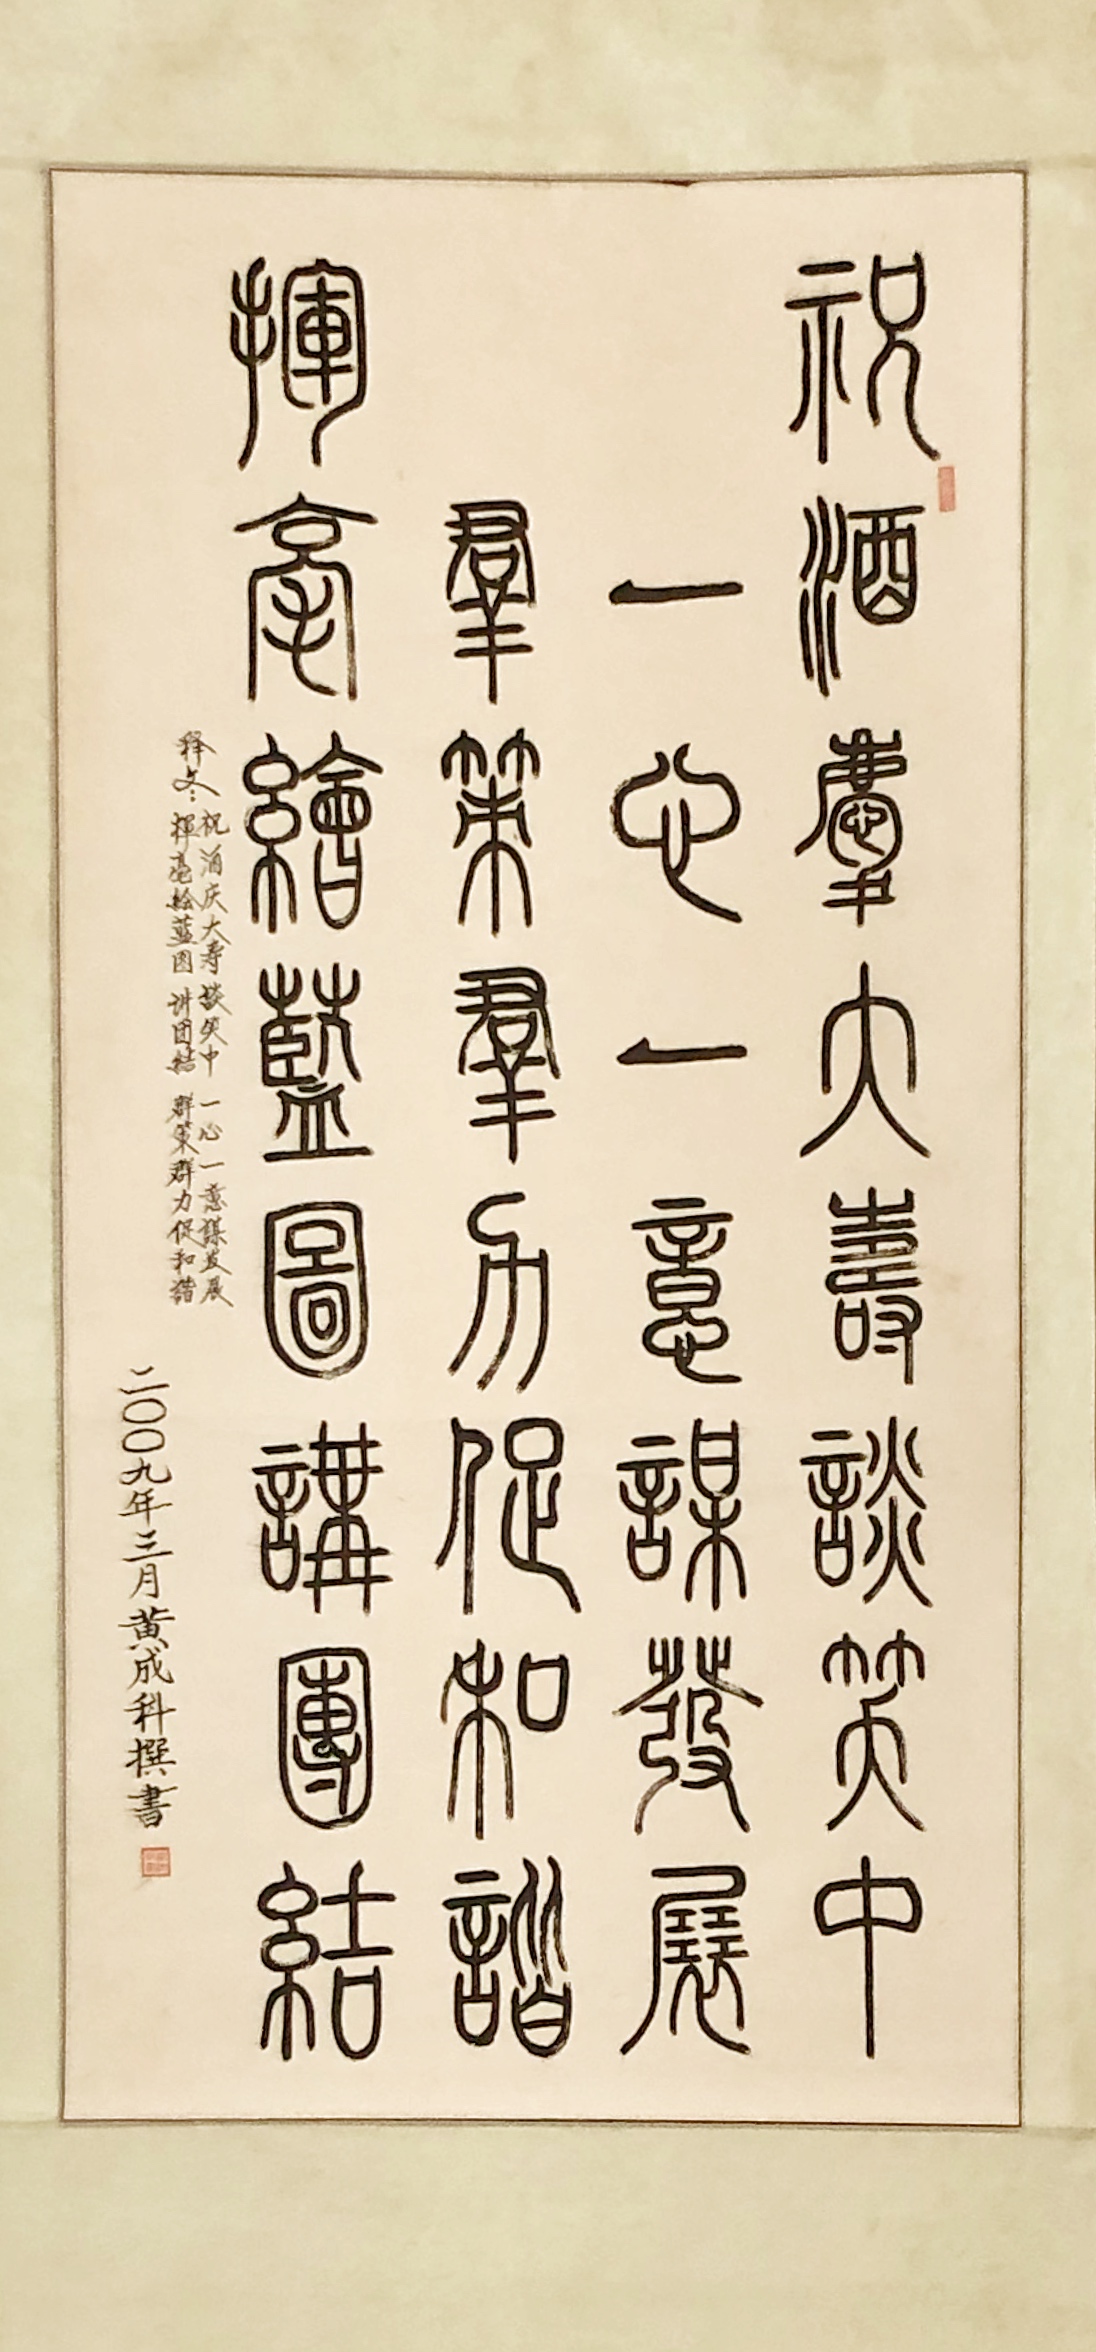 祝酒慶大壽談笑中
一心一意謀發展
羣策羣力促和諧
揮毫繪藍圖講團結
释文：祝酒庆大寿谈笑中 一心一意谋发展
揮毫绘蓝图 讲团结 群策群力促和谐
二〇〇九年三月黄成科撰書